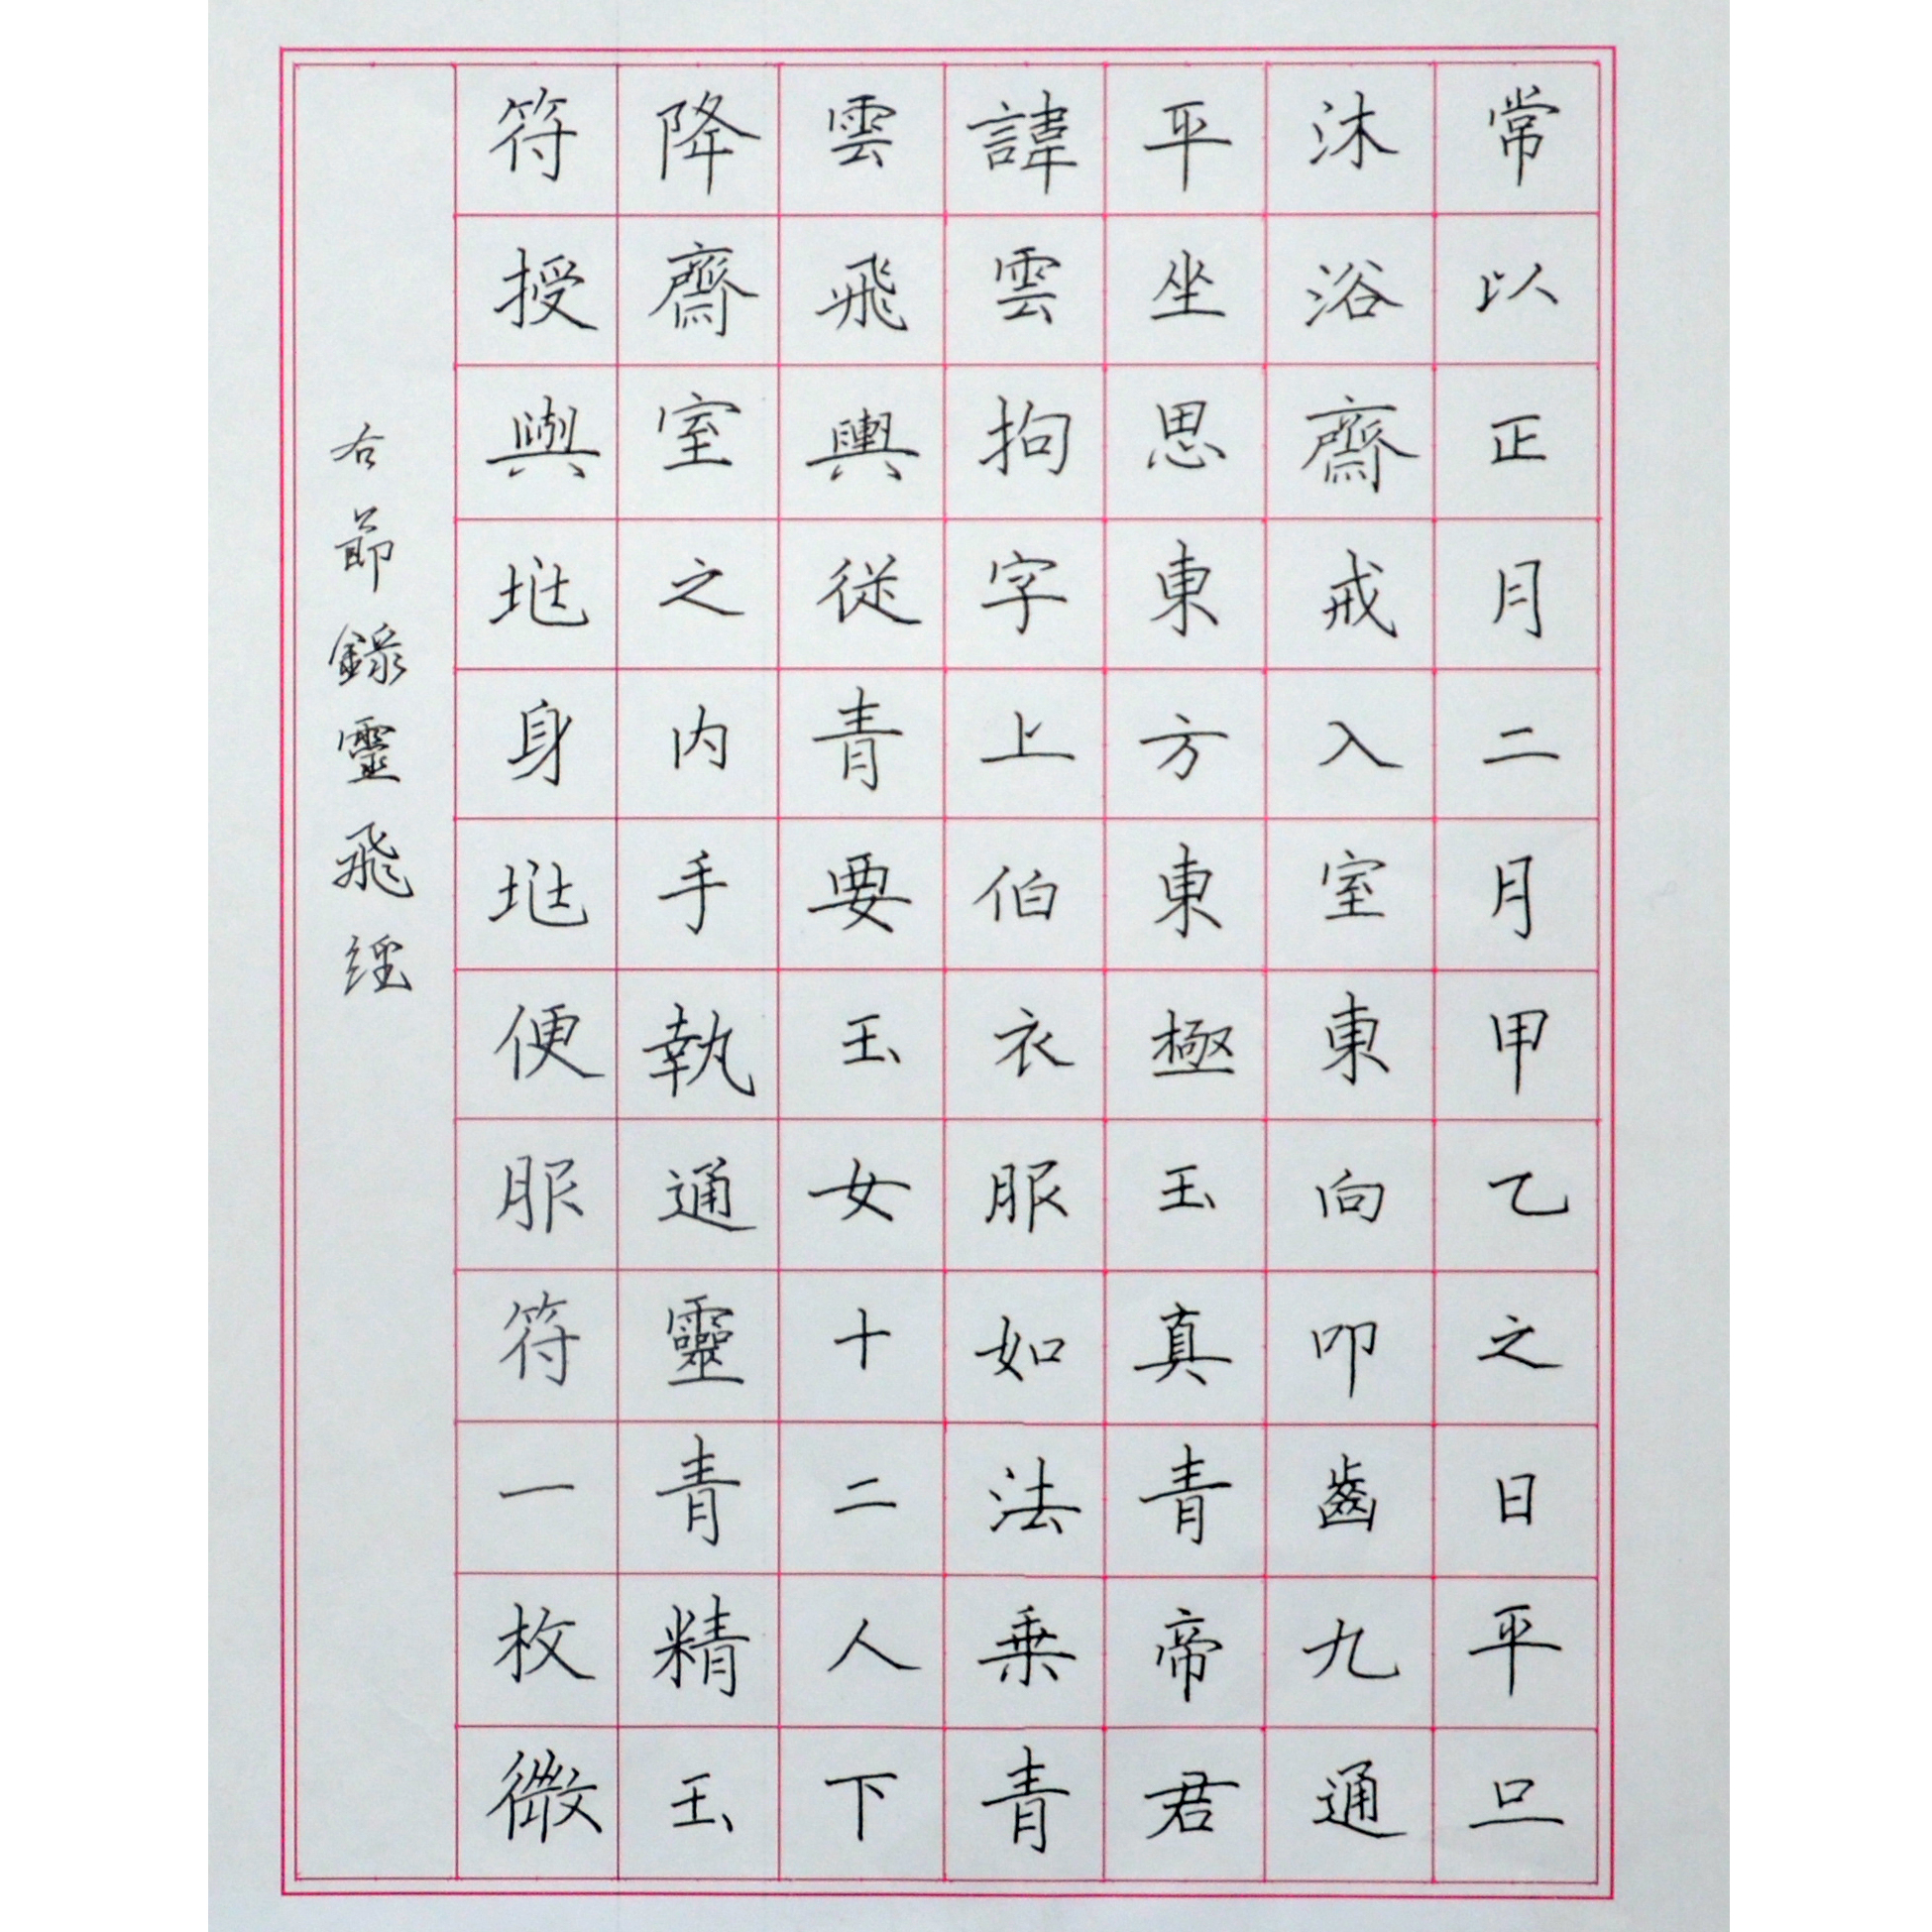 常以正月二月甲乙之日平旦
沐浴齋戒入室東向叩齒九通
平坐思東方東極玉真青帝君
諱雲拘字上伯衣服如法乘青
雲飛輿從青要玉女十二人下
降齋室之内手執通靈青精玉
符授與兆身兆便服符一枚微
右節錄靈飛經